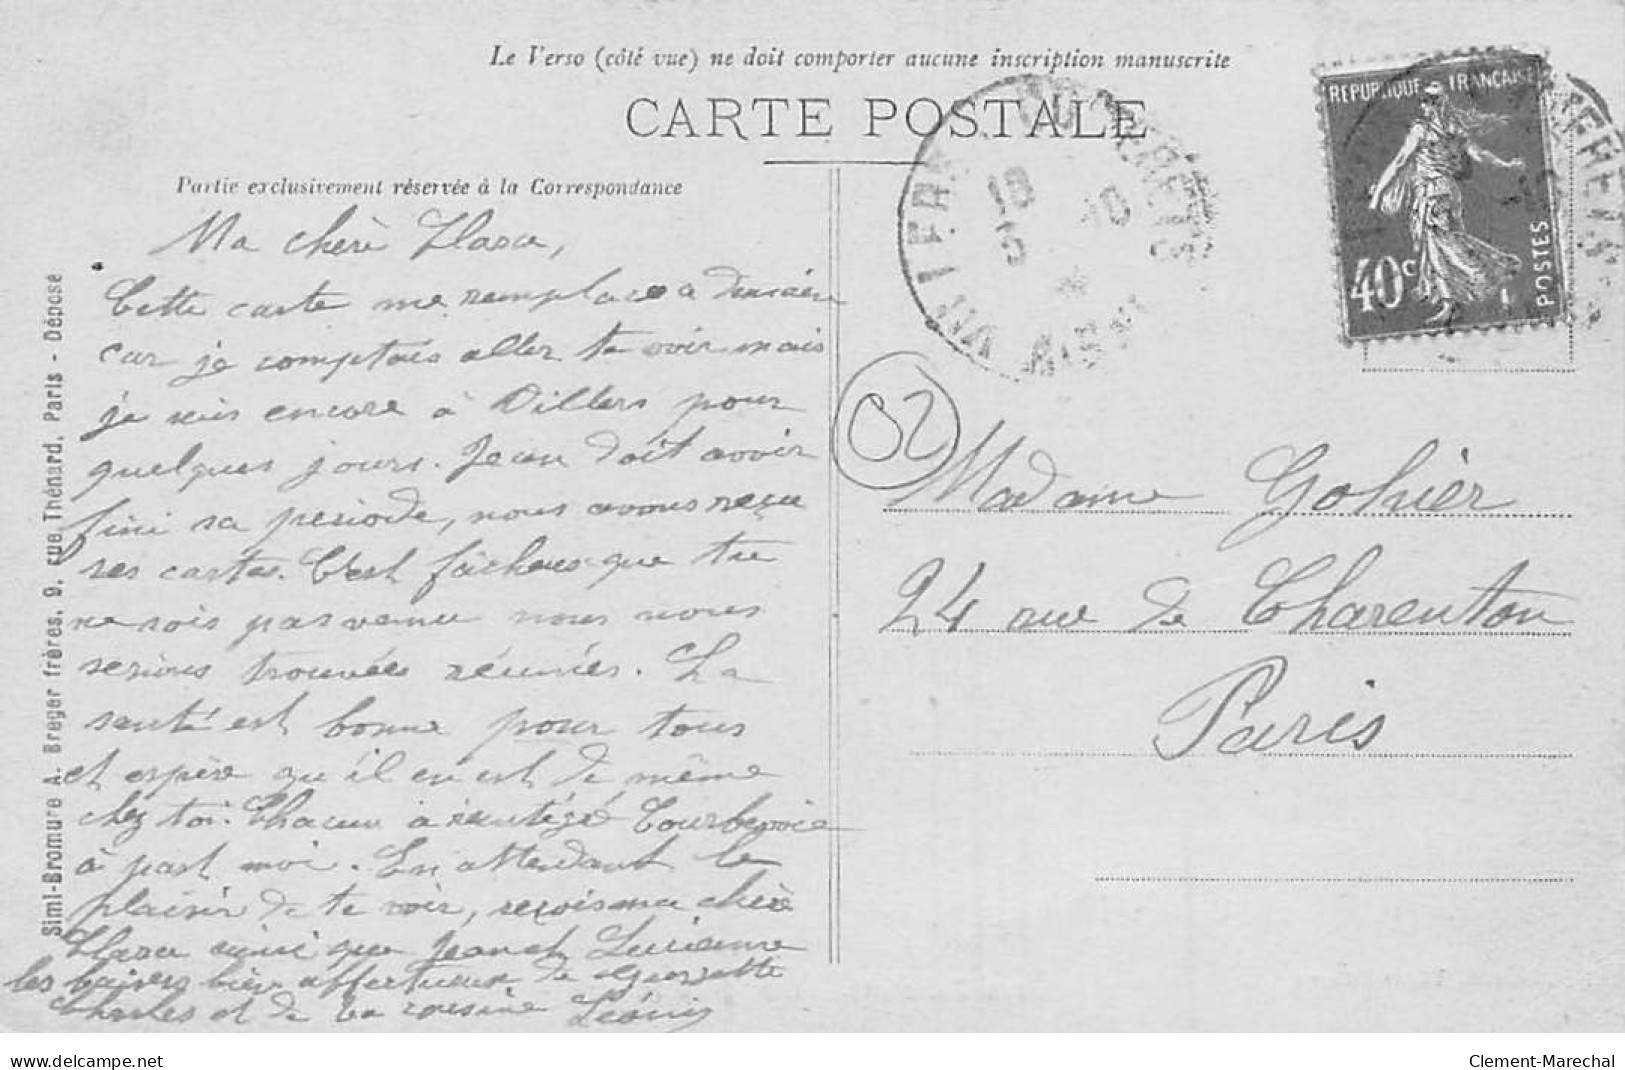 Le Verso (côté vue) ne doit comporter aucune inscription manuscrite
CARTE POSTALE
Partie exclusivement réservée à la Correspondance
Simi-Bromure A. Breger frères, 9, rue Thénard, Paris - Déposé
REPUBLIQUE FRANCAISE
40c
POSTES
COTTERETS
18
10
02
Ma chère
Cette carte me remplace
car je comptais aller te voir mais
je suis encore à Villers pour
quelques jours. Jean doit avoir
fini sa periode, nous avons reçu
ses cartes. C'est fâcheux que tu
ne sois pas venu nous nous
serions trouvées réunies. La
santé est bonne pour tous
et espère qu'il en est de même
chez toi. Chacun a réintégré Courbevoie
à part moi. En attendant le
plaisir de te voir, reçois ma chère
ainsi que Jean et Lucienne
les baisers bien affectueux de Georgette
Charles et de ta cousine
Madame Gohier
24 rue de Charenton
Paris
www.delcampe.net
Clement-Marechal